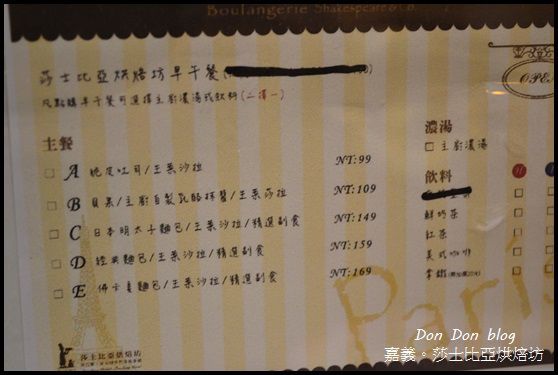 Boulangerie Shakespeare & Co.
莎士比亞烘焙坊早午餐
凡點購早午餐可選擇主廚濃湯或飲料(二擇一)
OPE
主餐
□ A 脆皮吐司/生菜沙拉 NT:99
□ B 貝果/主廚自製乳酪抹醬/生菜莎拉 NT:109
□ C 日本明太子麵包/生菜沙拉/精選副食 NT:149
□ D 經典麵包/生菜沙拉/精選副食 NT:159
□ E 佛卡夏麵包/生菜沙拉/精選副食 NT:169
濃湯
□ 主廚濃湯
飲料
鮮奶茶 □
紅茶 □
美式咖啡 □
拿鐵
Paris
莎士比亞烘焙坊
Don Don blog
嘉義。莎士比亞烘焙坊